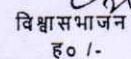 विश्वासभाजन
ह० /-